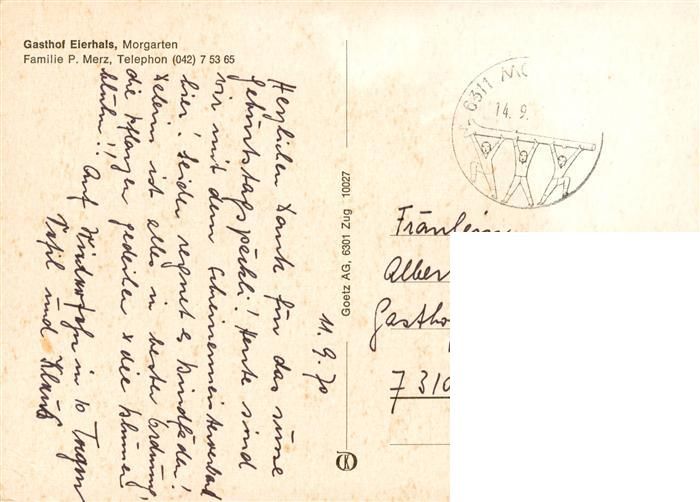 Gasthof Eierhals, Morgarten
Familie P. Merz, Telephon (042) 7 53 65
Herzlichen Dank für das süsse
Geburtstagspäckli! Heute sind
wir mit dem Schreinermeisterverband
hier! Leider regnet es Bindfäden!
Daheim ist alles in bester Ordnung,
die Pflanzen gedeihen & die Blumen
blühn!! Auf Wiedersehn in 10 Tagen
und Klaus
11.9.70
Goetz AG, 6301 Zug 10027
6311 MO
14. 9.
Fräulein
Alber
Gastho
7310